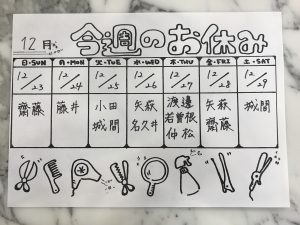 12月
今週のお休み
日・SUN 月・MON 火・TUE 水・WED 木・THU 金・FRI 土・SAT
12/23 12/24 12/25 12/26 12/27 12/28 12/29
齋藤 藤井 小田 矢萩 渡邉 矢萩 城間
城間 名久井 若曽根 齋藤
仲松